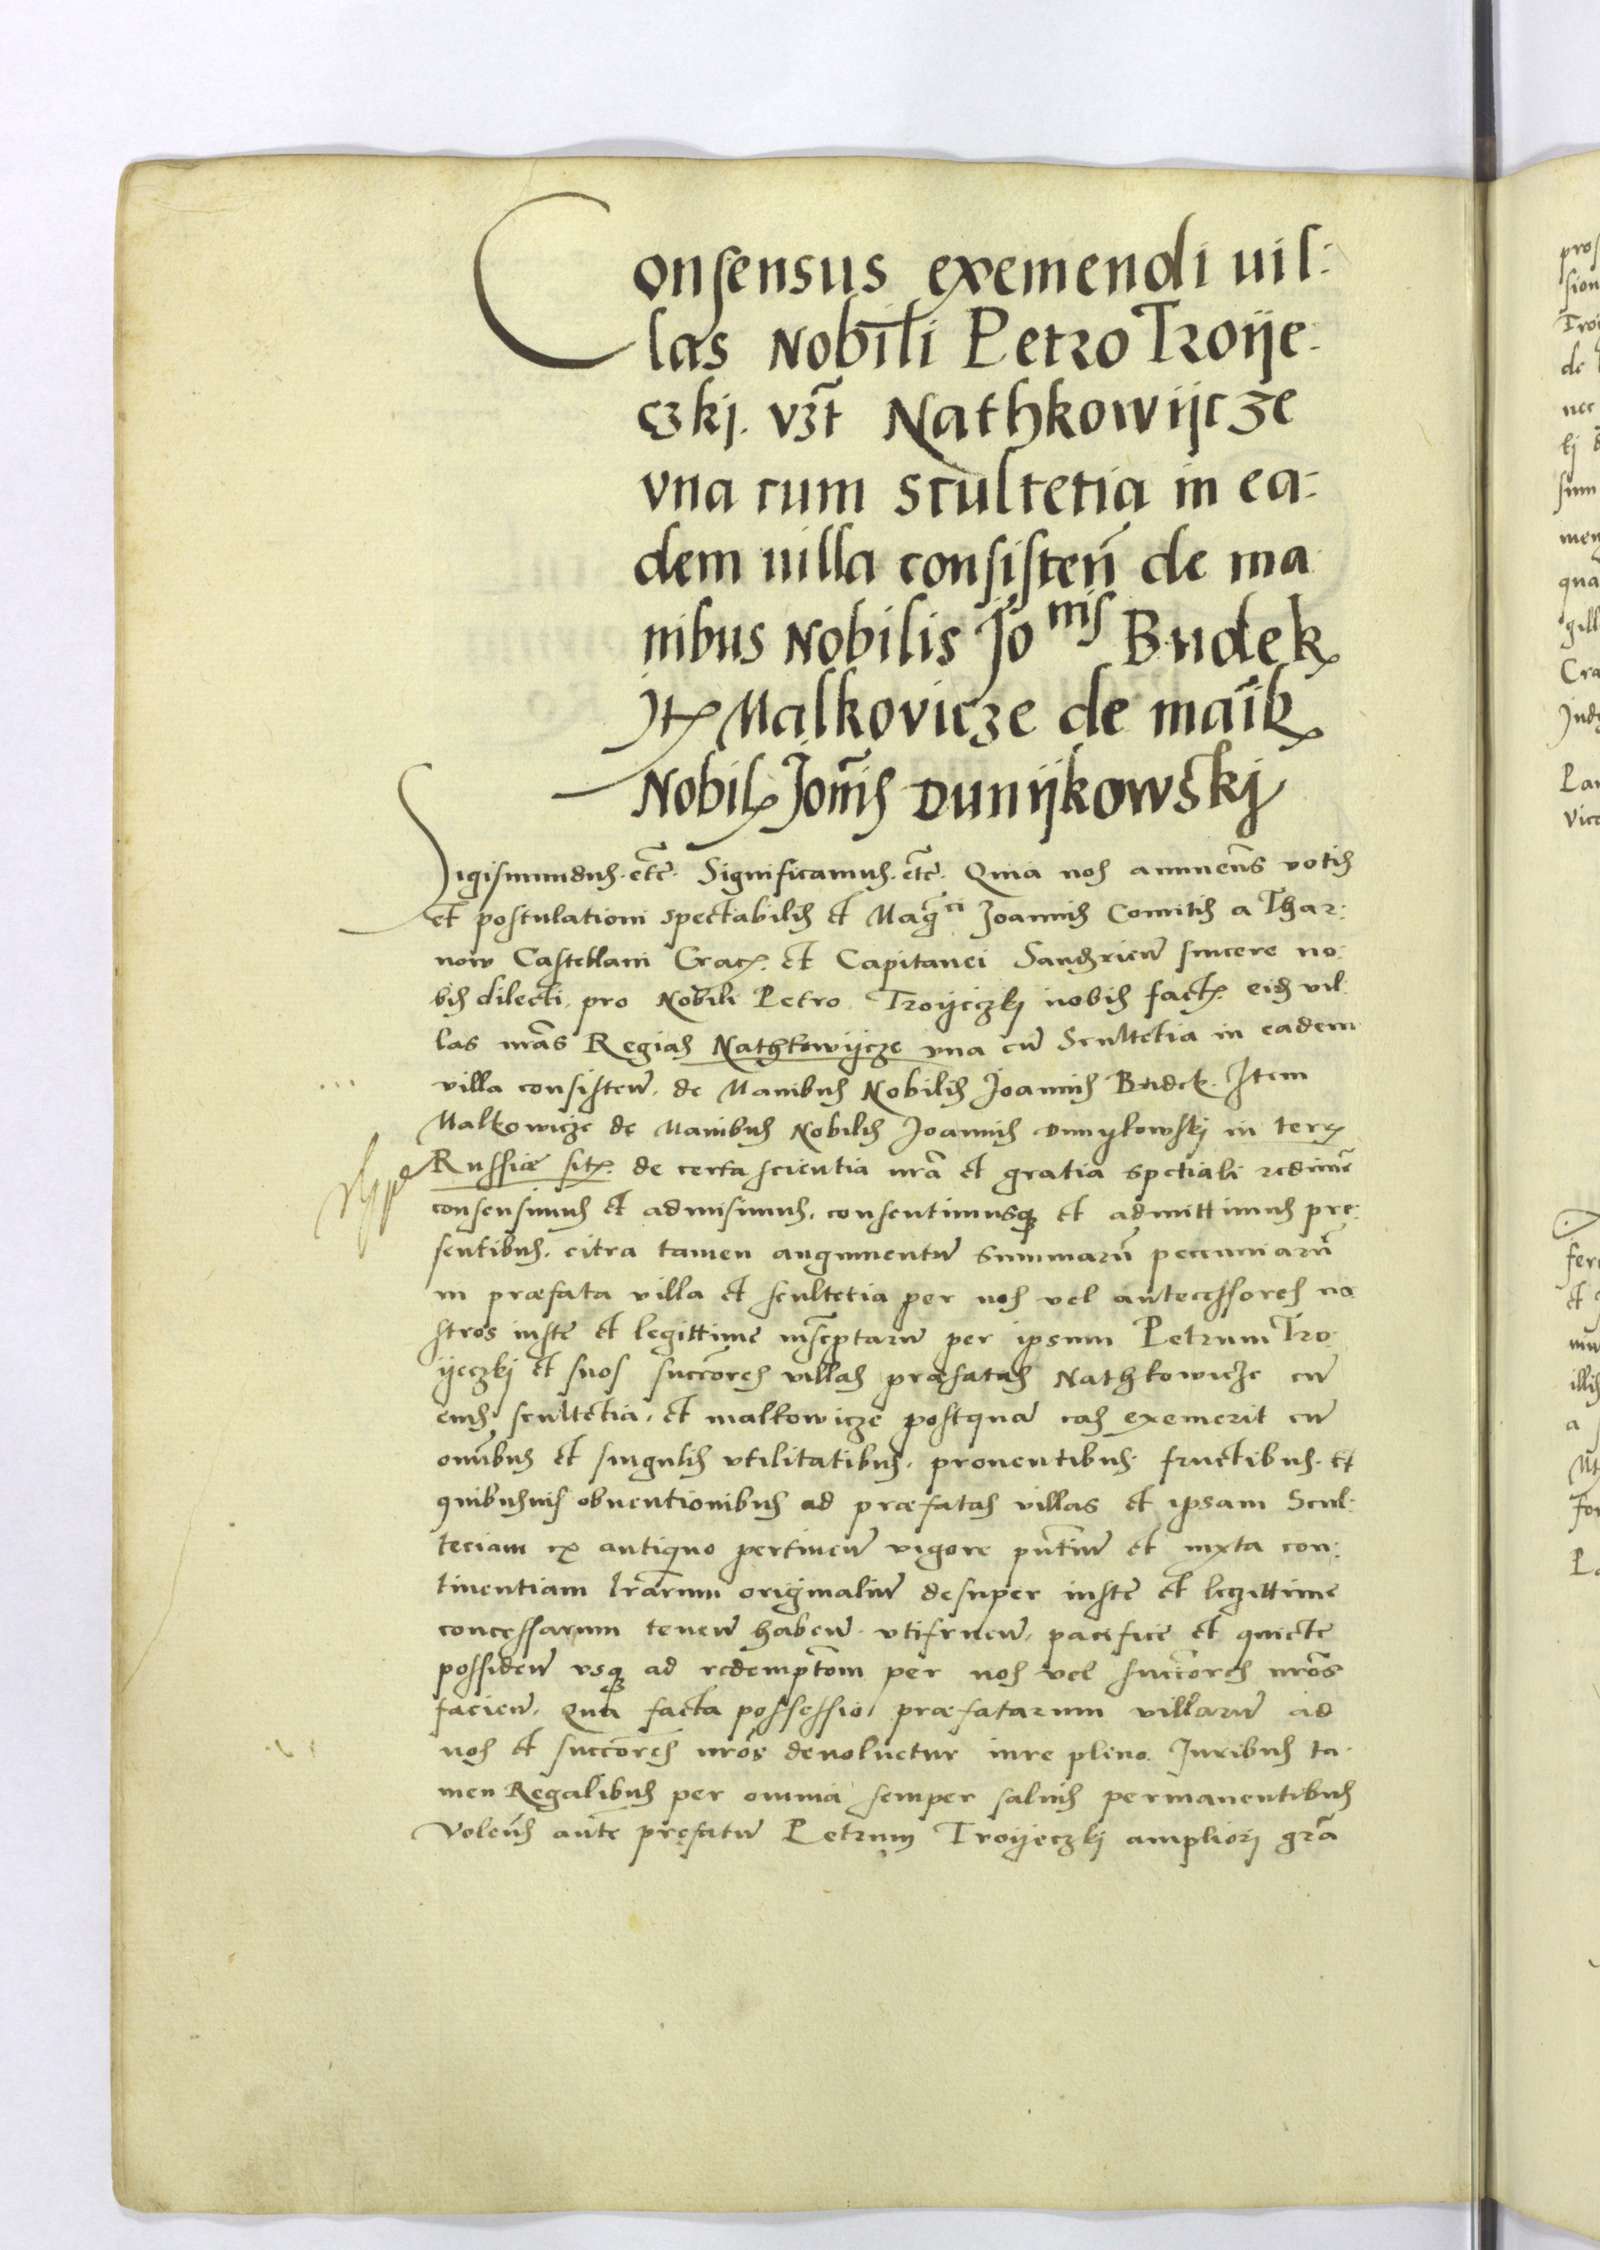 Consensus exemendi uil:
las Nobili Petro Troije:
czkj. vzt Nathkowijcze
vna cum scultetia in ea:
dem uilla consisten de ma
nibus Nobilis Jonis Budek
Jt Malkovicze de maib
Nobil Jonis Dunijkowskj
Sigismundus. etc. Significamus. etc. Quia nos annuens votis
et postulationi spectabilis et Magci Joannis Comitis a Thar:
now Castellani Crac. et Capitanei Sandzrien sincere no:
bis dilecti. pro Nobili Petro Troijeczkj nobis fact. eid vil:
las nras Regias Nathkowijcze vna cu Scultetia in eadem
villa consisten. de Manibus Nobilis Joannis Budek. Item
Malkowicze de Manibus Nobilis Joannis Dunykowskj in terr
Russiae sit. de certa scientia nra et gratia spetiali redime
consensimus et admisimus. consentimusq et admittimus pre:
sentibus. citra tamen augumentu summaru peccuniaru
in praefata villa et scultetia per nos vel antecessores no
stros iuste et legittime inscptaru per ipsum Petrum Tro:
ijeczkj et suos succores villas praefatas Nathkowicze cu
eius scultetia. et malkowicze postqua eas exemerit cu
omibus et singulis vtilitatibus. prouentibus. fructibus. et
quibusuis obuentionibus ad praefatas villas et ipsam Scul:
teciam ex antiquo pertinen vigore pntiu et iuxta con:
tinentiam lrarum originaliu desuper iuste et legittime
concessarum tenen haben. vtifruen. pacifice et quiete
possiden vsq ad redemptom per nos vel succores nros
facien. Qua facta possessio praefatarum villaru ad
nos et succores nros deuoluetur iure pleno. Juribus ta:
men Regalibus per omnia semper saluis permanentibus
Volens aute prefatu Petrum Troijeczkj ampliorj gra